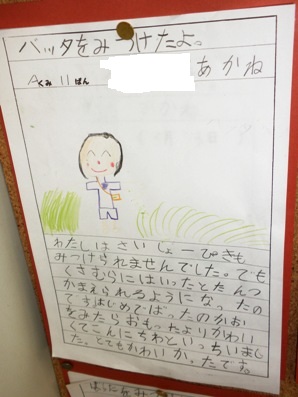 バッタをみつけたよ。
Aくみ 11ばん あかね
わたしはさいしょ一ぴきも
みつけられませんでした。でも
くさむらにはいったとたんつ
かまえられるようになったの
で、はじめてばったのかお
をみたらおもったよりかわい
くてこんにちわといっちいまし
た。とてもかわいかったです。